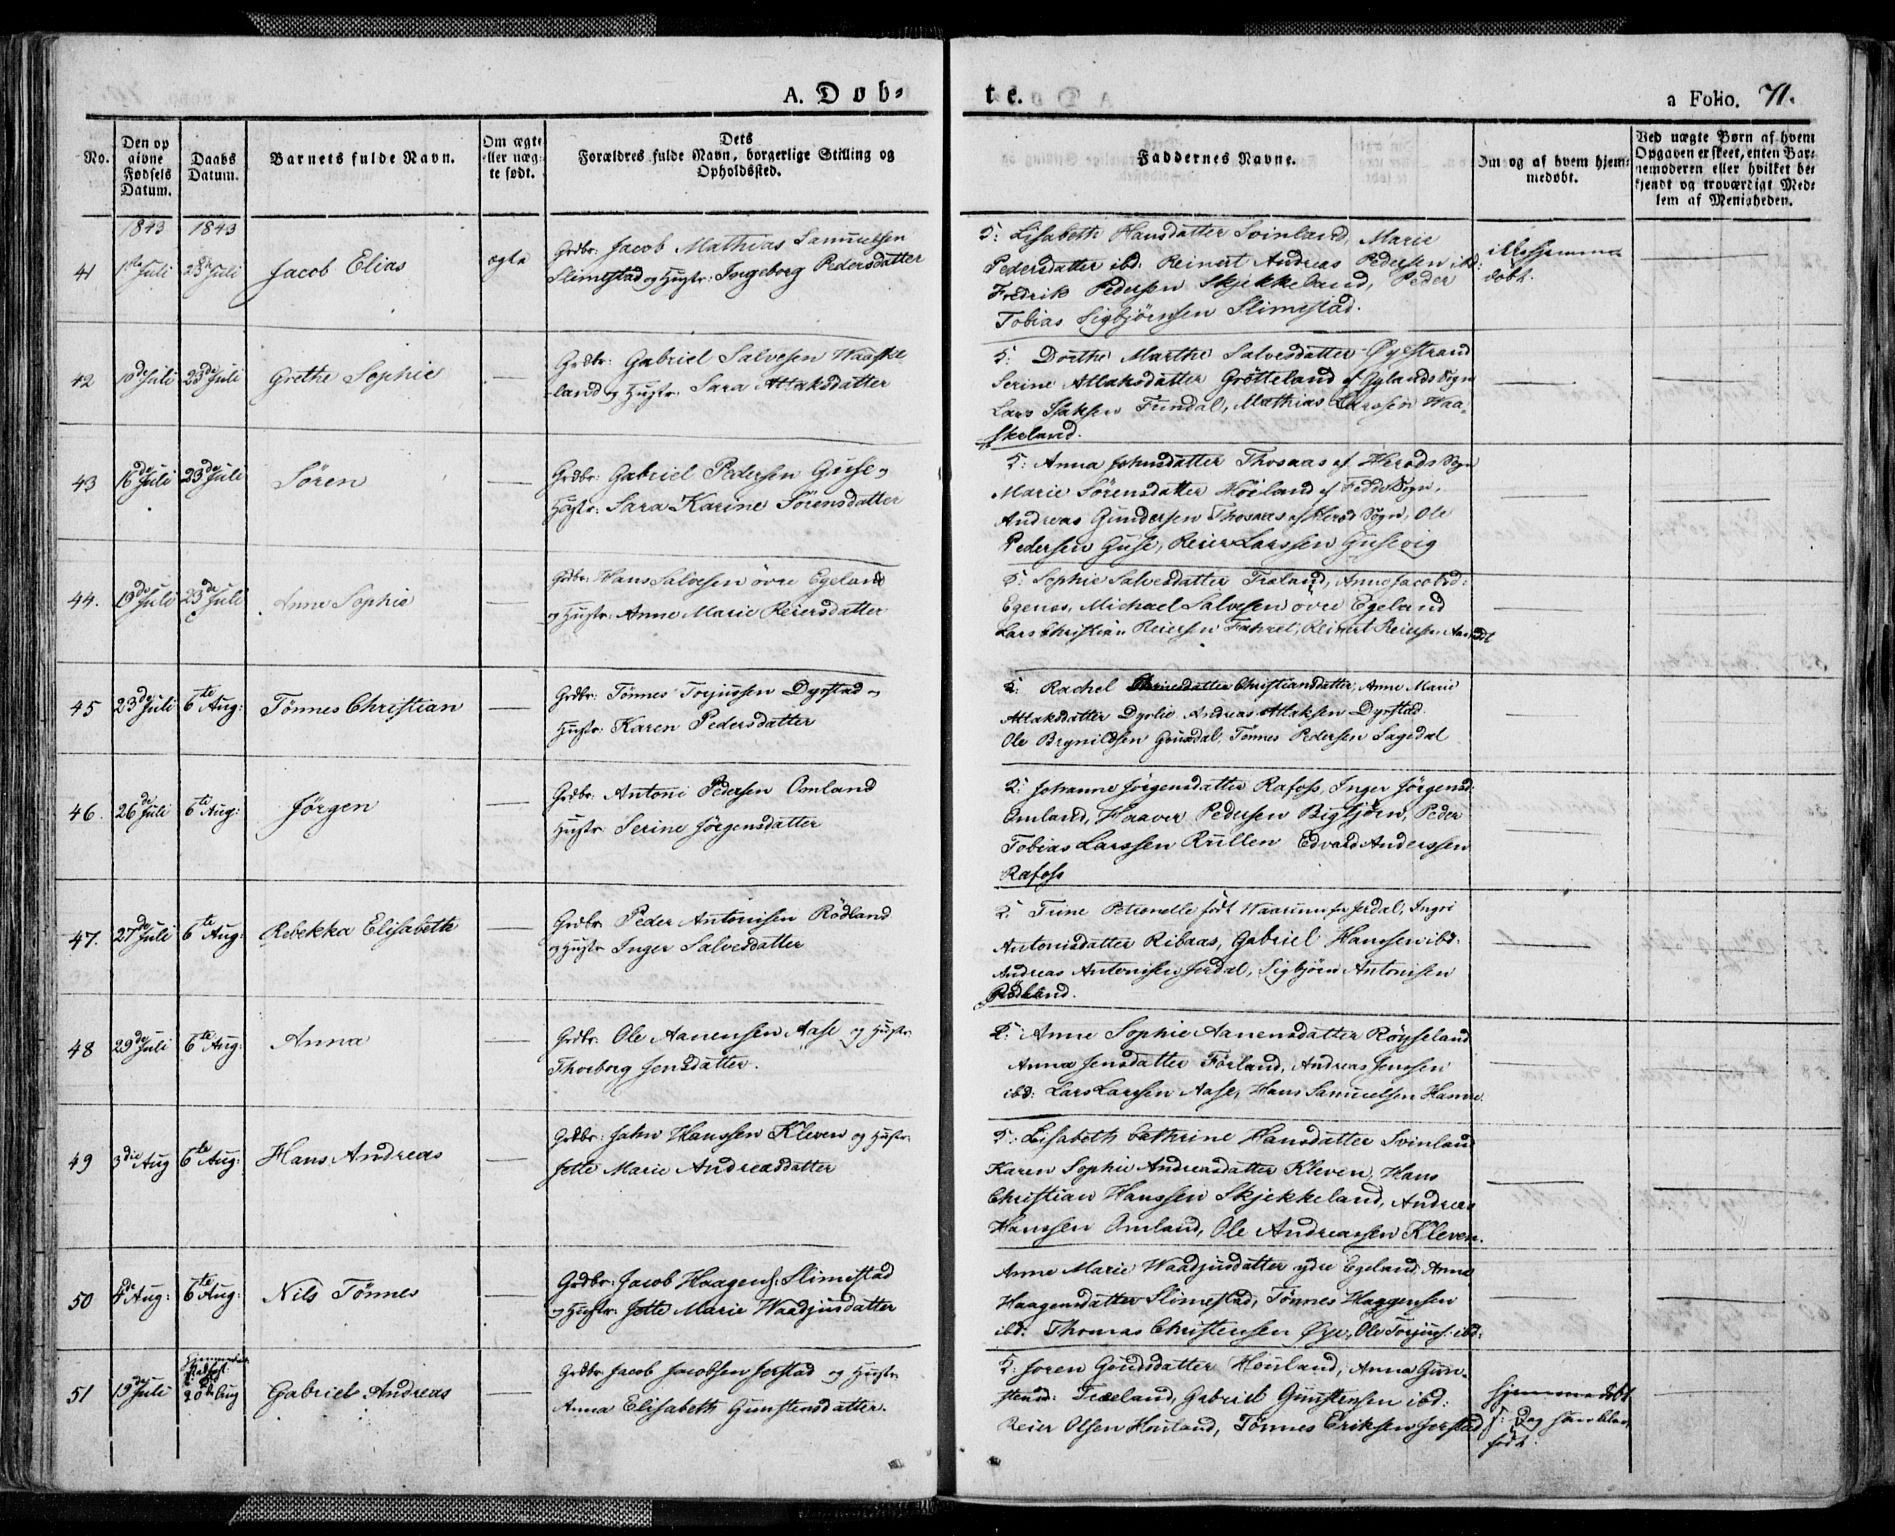 A. Døb-
te.
a Folio. 71.
No.
Den op givne Fødsels Datum.
Daabs Datum.
Barnets fulde Navn.
Om ægte eller uægte født.
Dets Forældres fulde Navn, borgerlige Stilling og Opholdssted.
Faddernes Navne.
Om og af hvem hjemmedøbt.
Ved uægte Børn af hvem Opgaven er skeet, enten Barnemoderen eller hvilket bekjendt og troværdigt Medlem af Menigheden.
1843 1843
41 1ste Juli 23de Juli Jacob Elias ægte
Grdbr: Jacob Mathias Samuelsen
Slimestad og Hustr: Ingeborg Pedersdatter
5: Lisabeth Hansdatter Svinland, Marie
Pedersdatter ibd: Reinert Andreas Pedersen ibd:
Fredrik Pedersen Skjekkeland, Peder
Tobias Sigbjørnsen Slimestad.
ikke hjemme
døbt.
42 10de Juli 23de Juli Grethe Sophie —
Grdbr: Gabriel Salvesen Waaske
land og Hustr: Sara Atlaksdatter
5: Dorthe Marthe Salvesdatter Øyestrand
Serine Atlaksdatter Grøtteland af Gylands Sogn
Lars Isaksen Fundal, Mathias Larssen Waa-
skeland.
43 16de Juli 23de Juli Søren —
Grdbr: Gabriel Pedersen Guse og
Hustr: Sara Karine Sørensdatter
5: Anna Johnsdatter Thosaas af Herods Sogn
Marie Sørensdatter Høiland af Fedde Sogn,
Andreas Gundersen Thosaas af Herod Sogn, Ole
Pedersen Guse, Reier Larssen Gusevig
44. 19de Juli 23de Juli Anne Sophie —
Grdbr: Hans Salvesen övre Egeland
og Hustr: Anne Marie Reiersdatter
5: Sophie Salvesdatter Træland, Anne Jacobsd:
Egenes, Michael Salvesen övre Egeland
Lars Christian Reiersen Fahret, Reinert Reiersen
45 23de Juli 6te Aug: Tönnes Christian —
Grdbr: Tönnes Torjussen Dyrstad og
Hustr: Karen Pedersdatter
5: Rachel Christiansdatter, Anne Marie
Atlaksdatter Dyrlie Andreas Atlaksen Dyrstad.
Ole Brynildsen Gousdal, Tönnes Pedersen Sagedal
46. 26de Juli 6te Aug: Jörgen —
Grdbr: Antoni Pedersen Omland
Hustr: Serine Jörgensdatter
5: Johanne Jörgensdatter Rafoss, Inger Jörgensd:
Omland, Haaver Pedersen Bigbjörn, Peder
Tobias Larssen Rullen Edvard Anderssen
Rafoss
47. 27de Juli 6te Aug: Rebekka Elisabeth —
Grdbr: Peder Antonisen Rödland
og Hustr Inger Salvesdatter
5: Trine Petronelle født Waarum fra Jerdal, Ingri
Antonisdatter Ribaas, Gabriel Hanssen ibd:
Andreas Antonisen Jerdal, Sigbjörn Antonisen
Rödland.
48 29de Juli 6te Aug: Anna —
Grdbr: Ole Aanensen Aase og Hustr:
Thorborg Jensdatter.
5: Anne Sophie Aanensdatter Röyseland
Anna Jensdatter Förland, Andreas Jenssen
ibd: Lars Larssen Aase, Hans Samuelsen Hamre.
49 3die Aug 6te Aug: Hans Andreas —
Grdbr: John Hanssen Kleven og Hustr:
Jette Marie Andreasdatter
5: Lisabeth Cathrine Hansdatter Svinland
Karen Sophie Andreasdatter Kleven, Hans
Christian Hanssen Skjekkeland, Andreas
Hanssen Omland, Ole Andreassen Kleven.
50 4de Aug: 6te Aug: Nils Tönnes —
Grdbr: Jacob Haagens: Slimestad
og Hustr: Jette Marie Waadjusdatter
Anne Marie Waadjusdatter ydre Egeland, Anne
Haagensdatter Slimestad, Tönnes Haagensen
ibd: Thomas Christensen Öye, Ole Torjus: ibd:
51 19de Juli 20de Aug Gabriel Andreas
Grdbr: Jacob Jacobsen Jerstad og Hustr:
Anna Elisabeth Gunstensdatter.
5: Joren Goudsdatter Houland, Anna Gun-
stensd: Træland, Gabriel Gunstensen ibd:
Reier Olsen Houland, Tönnes Eriksen Jerstad
hjemmedøbt
Dag
født.